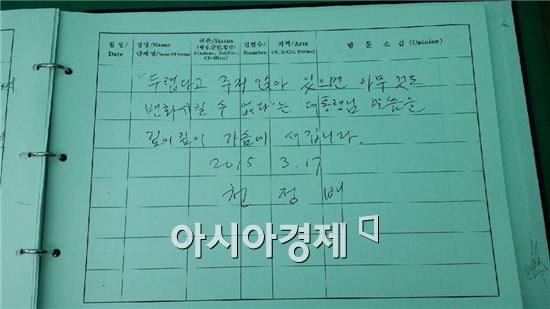 월 일/ 성명/Name 신분/Status 인원수/ 지역/Area 방 문 소 감 (Opinion)
Date 단체명/Name Of Group (학생,군인,일반) Number
Student, Soldier,
Civilian)
"두렵다고 주저 앉아 있으면 아무 것도
변화시킬 수 없다"는 대통령님 말씀을
깊이깊이 가슴에 새깁니다.
2015. 3. 17
천 정 배
아시아경제